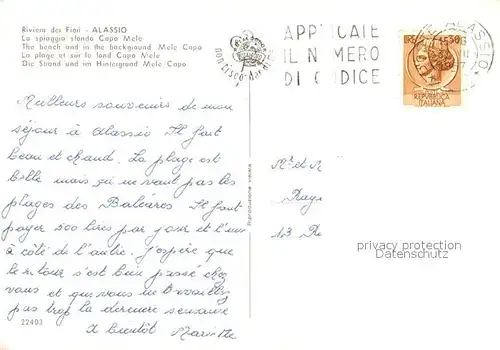 Riviera dei Fiori - ALASSIO
La spiaggia sfondo Capo Mele
The beach and in the background Mele Capo
La plage et sur le fond Capo Mele
Die Strand und im Hintergrund Mele Capo
APPLICATE
IL NUMERO
DI CODICE
ALASSIO
LIRE 50
REPUBBLICA
ITALIANA
Meilleurs souvenirs de mon
séjour à Alassio Il fait
beau et chaud. La plage est
belle mais ça ne vaut pas les
plages des Baléares Il faut
payer 500 lires par jour et l'un
à côté de l'autre. J'espère que
le retour s'est bien passé chez
vous et que vous ne travaillez
pas trop la dernière semaine
A bientôt
Mr et M
13
Riproduzione vietata
privacy protection
Datenschutz
22403